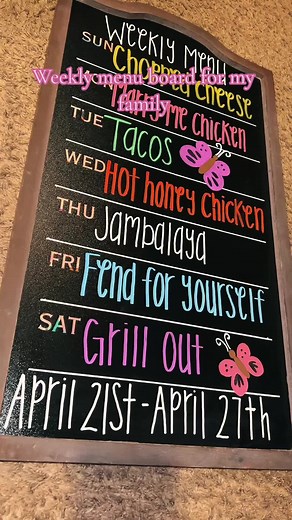 Weekly Menu
SUN Chopped Cheese
Weekly menu board for my
family
Marry me Chicken
TUE Tacos
WED Hot honey Chicken
THU Jambalaya
FRI Fend for yourself
SAT Grill out
April 21st - April 27th